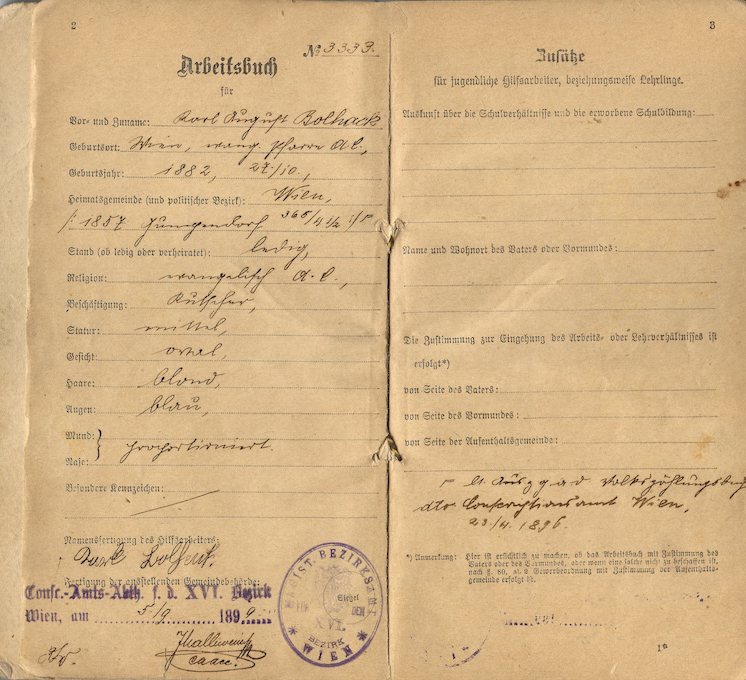 2
Arbeitsbuch № 3333.
für
Vor- und Zuname: Karl August Bolhack
Geburtsort: Wien, evang. Pfarre A.C.,
Geburtsjahr: 1882, 27/10.,
Heimatsgemeinde (und politischer Bezirk): Wien,
/: 1857 Gumpendorf 368/4
Stand (ob ledig oder verheiratet): ledig,
Religion: evangelisch A. C.,
Beschäftigung: Kutscher,
Statur: mittel,
Gesicht: oval,
Haare: blond,
Augen: blau,
Mund:
Nase: } proportioniert.
Besondere Kennzeichen:
Namensfertigung des Hilfsarbeiters:
Karl
Fertigung der ausstellenden Gemeindebehörde:
Consc.-Amts-Abth. f. d. XVI. Bezirk
Wien, am 5/9 1899
MAGIST. BEZIRKSAMT
Siegel
XVI.
BEZIRK
WIEN
3
Zusätze
für jugendliche Hilfsarbeiter, beziehungsweise Lehrlinge.
Auskunft über die Schulverhältnisse und die erworbene Schulbildung:
Name und Wohnort des Vaters oder Vormundes:
Die Zustimmung zur Eingehung des Arbeits- oder Lehrverhältnisses ist
erfolgt*)
von Seite des Vaters:
von Seite des Vormundes:
von Seite der Aufenthaltsgemeinde:
lt. Auszg a d Volkszählungsbuch
dto Conscriptionsamt Wien,
23/4. 1896.
*) Anmerkung: Hier ist ersichtlich zu machen, ob das Arbeitsbuch mit Zustimmung des
Vaters oder des Vormundes, oder wenn eine solche nicht zu beschaffen ist,
nach § 80, al. 2 Gewerbeordnung mit Zustimmung der Aufenthalts-
gemeinde erfolgt ist.
1*